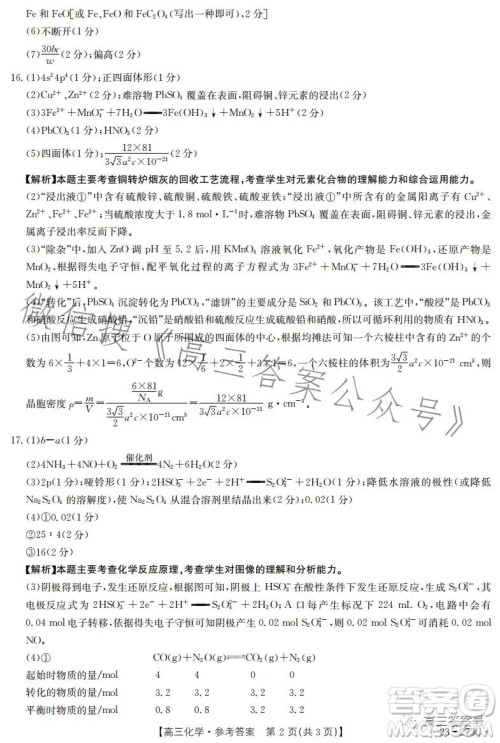 Fe和FeO[或Fe、FeO和FeC₂O₄(写出一种即可),2分]
(6)不断开(1分)
(7)30bc/w(2分);偏高(2分)
16.(1)4s²4p⁴(1分);正四面体形(1分)
(2)Cu²⁺、Zn²⁺(2分);难溶物PbSO₄覆盖在表面,阻碍铜、锌元素的浸出(2分)
(3)3Fe²⁺+MnO₄⁻+7H₂O══3Fe(OH)₃↓+MnO₂↓+5H⁺(2分)
(4)PbCO₃(1分);HNO₃(2分)
(5)四面体(1分);12×81/(3√3a²c×10⁻²¹)(2分)
【解析】本题主要考查铜转炉烟灰的回收工艺流程,考查学生对元素化合物的理解能力和综合运用能力。
(2)“浸出液①”中含有硫酸锌、硫酸铜、硫酸铁、硫酸亚铁;“浸出液①”中所存在的金属阳离子有Cu²⁺、
Zn²⁺、Fe²⁺、Fe³⁺;当硫酸浓度大于1.8mol·L⁻¹时,难溶物PbSO₄覆盖在表面,阻碍铜、锌元素的浸出,金
属离子浸出率反而下降。
(3)“除杂”时,加入ZnO调pH至5.2后,用KMnO₄溶液氧化Fe²⁺,氧化产物是Fe(OH)₃,还原产物是
MnO₂,根据得失电子守恒,配平氧化过程的离子方程式为3Fe²⁺+MnO₄⁻+7H₂O══3Fe(OH)₃↓+
MnO₂↓+5H⁺。
(4)“转化”后,PbSO₄沉淀转化为PbCO₃,“滤饼”的主要成分是SiO₂和PbCO₃。该工艺中,“酸浸”是PbCO₃
和硝酸反应生成硝酸铅,“沉铅”是硝酸铅和硫酸反应生成硫酸铅和硝酸,因此可循环利用的物质是HNO₃。
(5)由图可知,Zn原子位于O原子所围成的四面体的中心,根据均摊法可知一个六棱柱中含有Zn²⁺的个
数为6×1/3+4×1=6,O²⁻个数为12×1/6+2×1/2+3×1=6,一个六棱柱的体积为3√3/2a²c×10⁻²¹cm³,则
晶胞密度ρ=m/V=(6×81/Nₐ g)/(3√3/2a²c×10⁻²¹cm³)=12×81/(3√3a²c×10⁻²¹Nₐ)g·cm⁻³。
17.(1)b−a(1分)
(2)4NH₃+4NO+O₂═催化剂═4N₂+6H₂O(2分)
(3)2p(1分);哑铃形(1分);2HSO₃⁻+2e⁻+2H⁺══S₂O₄²⁻+2H₂O(2分);降低水溶液的极性(或降低
Na₂S₂O₄的溶解度),使Na₂S₂O₄从混合溶剂里结晶出来(2分);0.02(1分)
(4)①0.02(1分)
②25:4(2分)
③16(2分)
【解析】本题主要考查化学反应原理,考查学生对图像的理解和分析能力。
(3)阴极得到电子,发生还原反应,根据图可知,阴极上HSO₃⁻在酸性条件下发生还原反应,生成S₂O₄²⁻,其
电极反应式为2HSO₃⁻+2e⁻+2H⁺══S₂O₄²⁻+2H₂O;A口每产生标准状况下224mLO₂,电路中会有
0.04mol电子转移,依据得失电子守恒则产生0.02molS₂O₄²⁻,则0.02molS₂O₄²⁻可消耗0.02mol
NO。
(4)① CO(g)+N₂O(g)⇌CO₂(g)+N₂(g)
起始时物质的量/mol 4 4 0 0
转化的物质的量/mol 3.2 3.2 3.2 3.2
平衡时物质的量/mol 0.8 0.8 3.2 3.2
【高三化学·参考答案 第2页(共3页)】
微信搜《高三答案公众号》